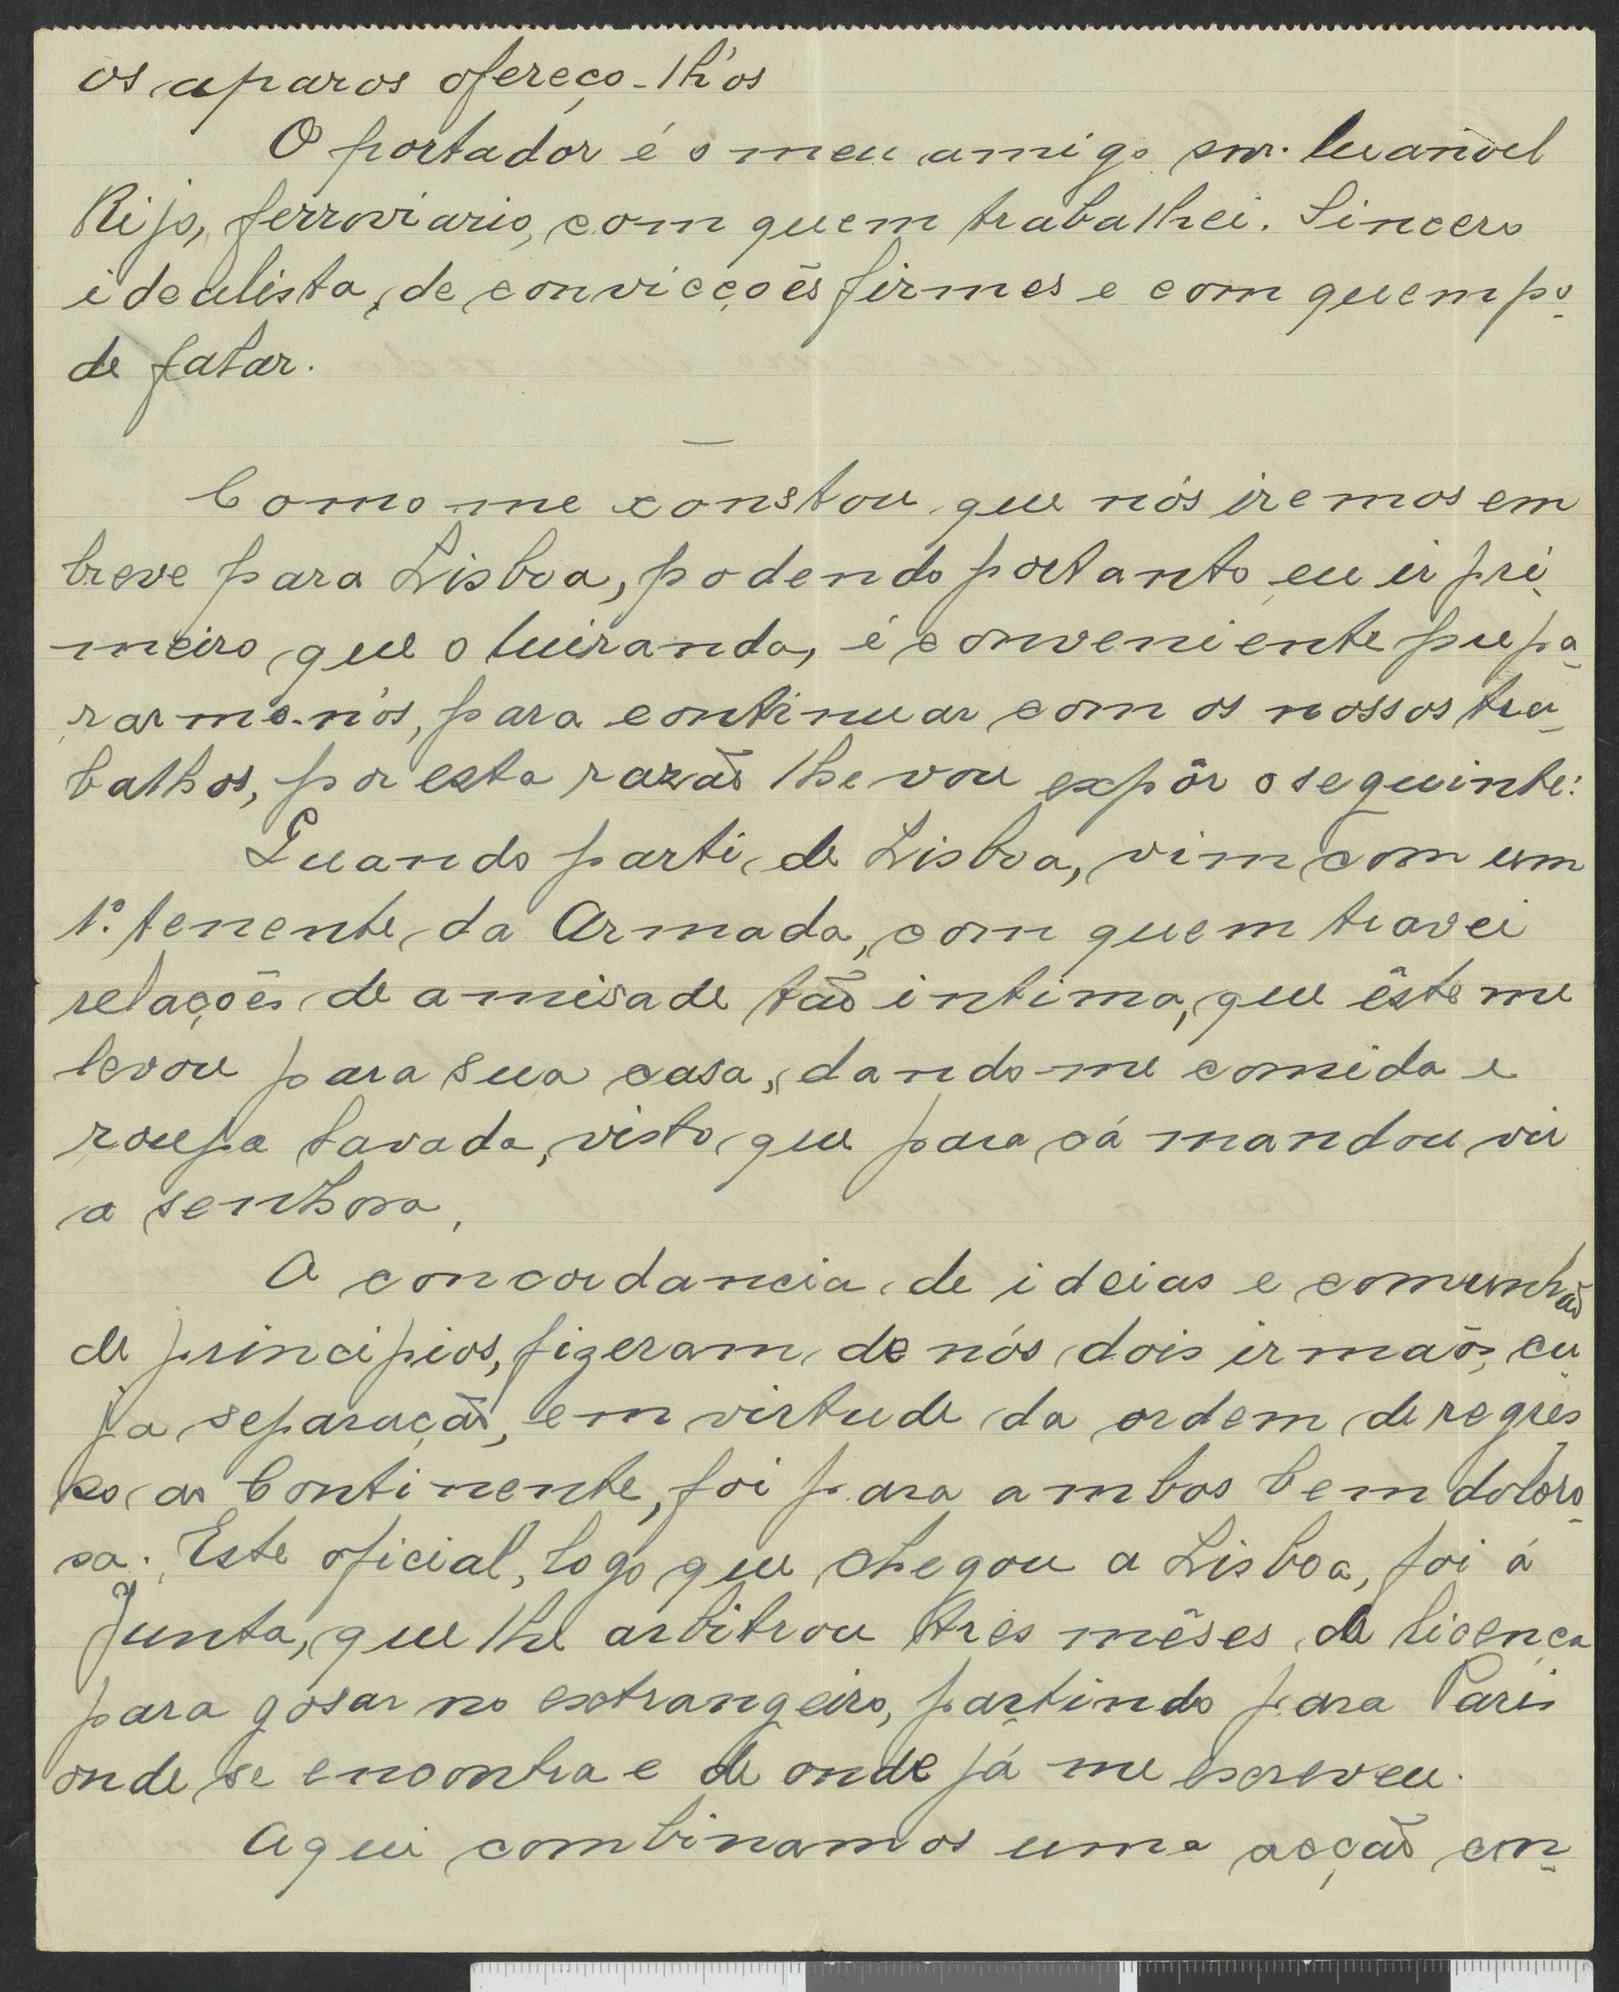 os aparos ofereço-lh'os
O portador é o meu amigo snr. Manoel
Rijo, ferroviario, com quem trabalhei. Sincero
idealista, de convicções firmes e com quem po-
de falar.
—
Como me constou que nós iremos em
breve para Lisboa, podendo portanto eu ir pri-
meiro que o Miranda, é conveniente prepa-
rarmo-nos, para continuar com os nossos tra-
balhos, por esta razão lhe vou expôr o seguinte:
Quando parti de Lisboa, vim com um
1º. tenente da Armada, com quem travei
relações de amisade tão intima, que êste me
levou para sua casa, dando-me comida e
roupa lavada, visto que para cá mandou vir
a senhora.
A concordancia de ideias e comunhão
de principios, fizeram de nós dois irmãos, cu-
ja separação, em virtude da ordem de regres-
so ao Continente, foi para ambos bem doloro-
sa. Este oficial, logo que chegou a Lisboa, foi á
Junta, que lhe arbitrou tres mêses de licença
para gosar no extrangeiro, partindo para Paris
onde se encontra e de onde já me escreveu.
Aqui combinamos uma acção en-